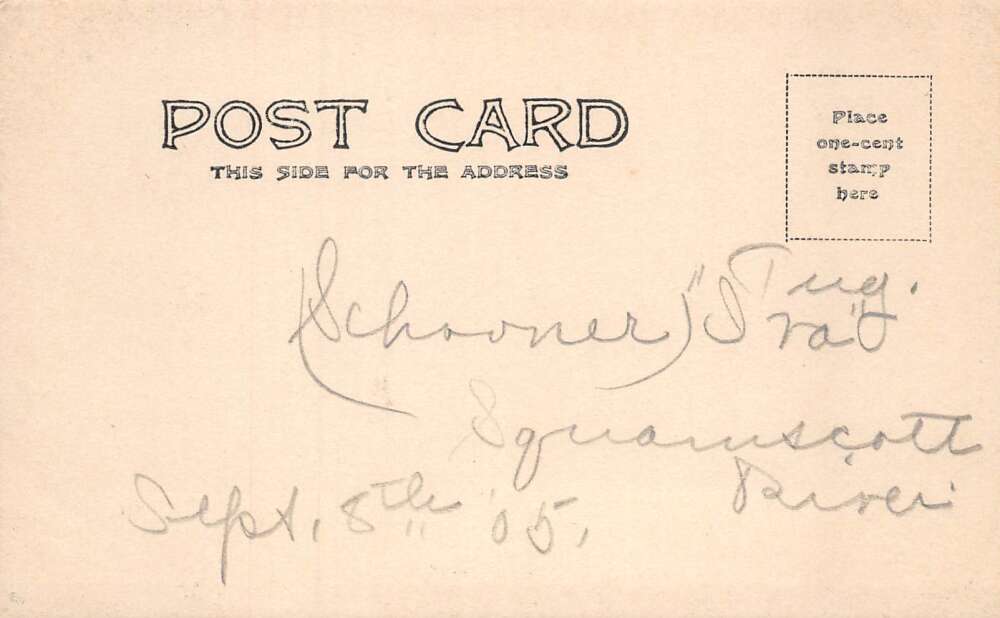 POST CARD
THIS SIDE FOR THE ADDRESS
Place
one-cent
stamp
here
(Schooner) Tug.
Squamscott
River
Sept. 8th '05.